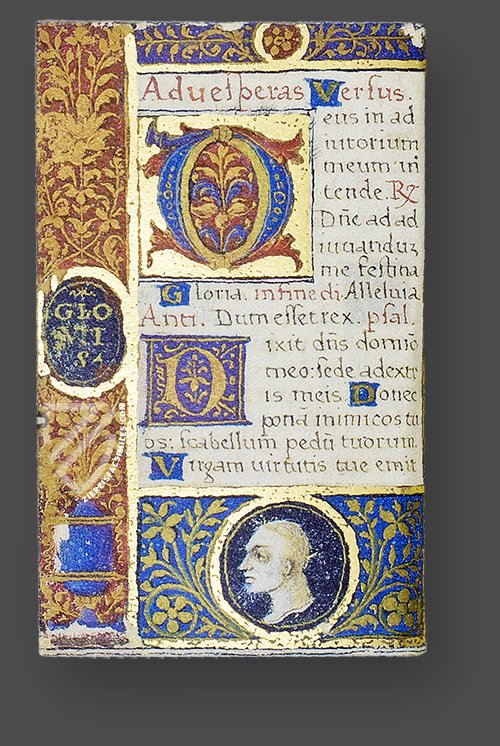 Aduesperas Versus.
Deus in ad
iutorium
meum in
tende. ℞
Dn̄e ad ad
iuuanduʒ
me festina
Gloria. in fine ch̄. Alleluia
Anti. Dum esset rex. psal.
Dixit dn̄s domīo
meo: sede adextr
is meis. Donec
ponā inimicos tu
os: scabellum pedū tuorum.
Virgam uirtutis tue emit
GLO
TI